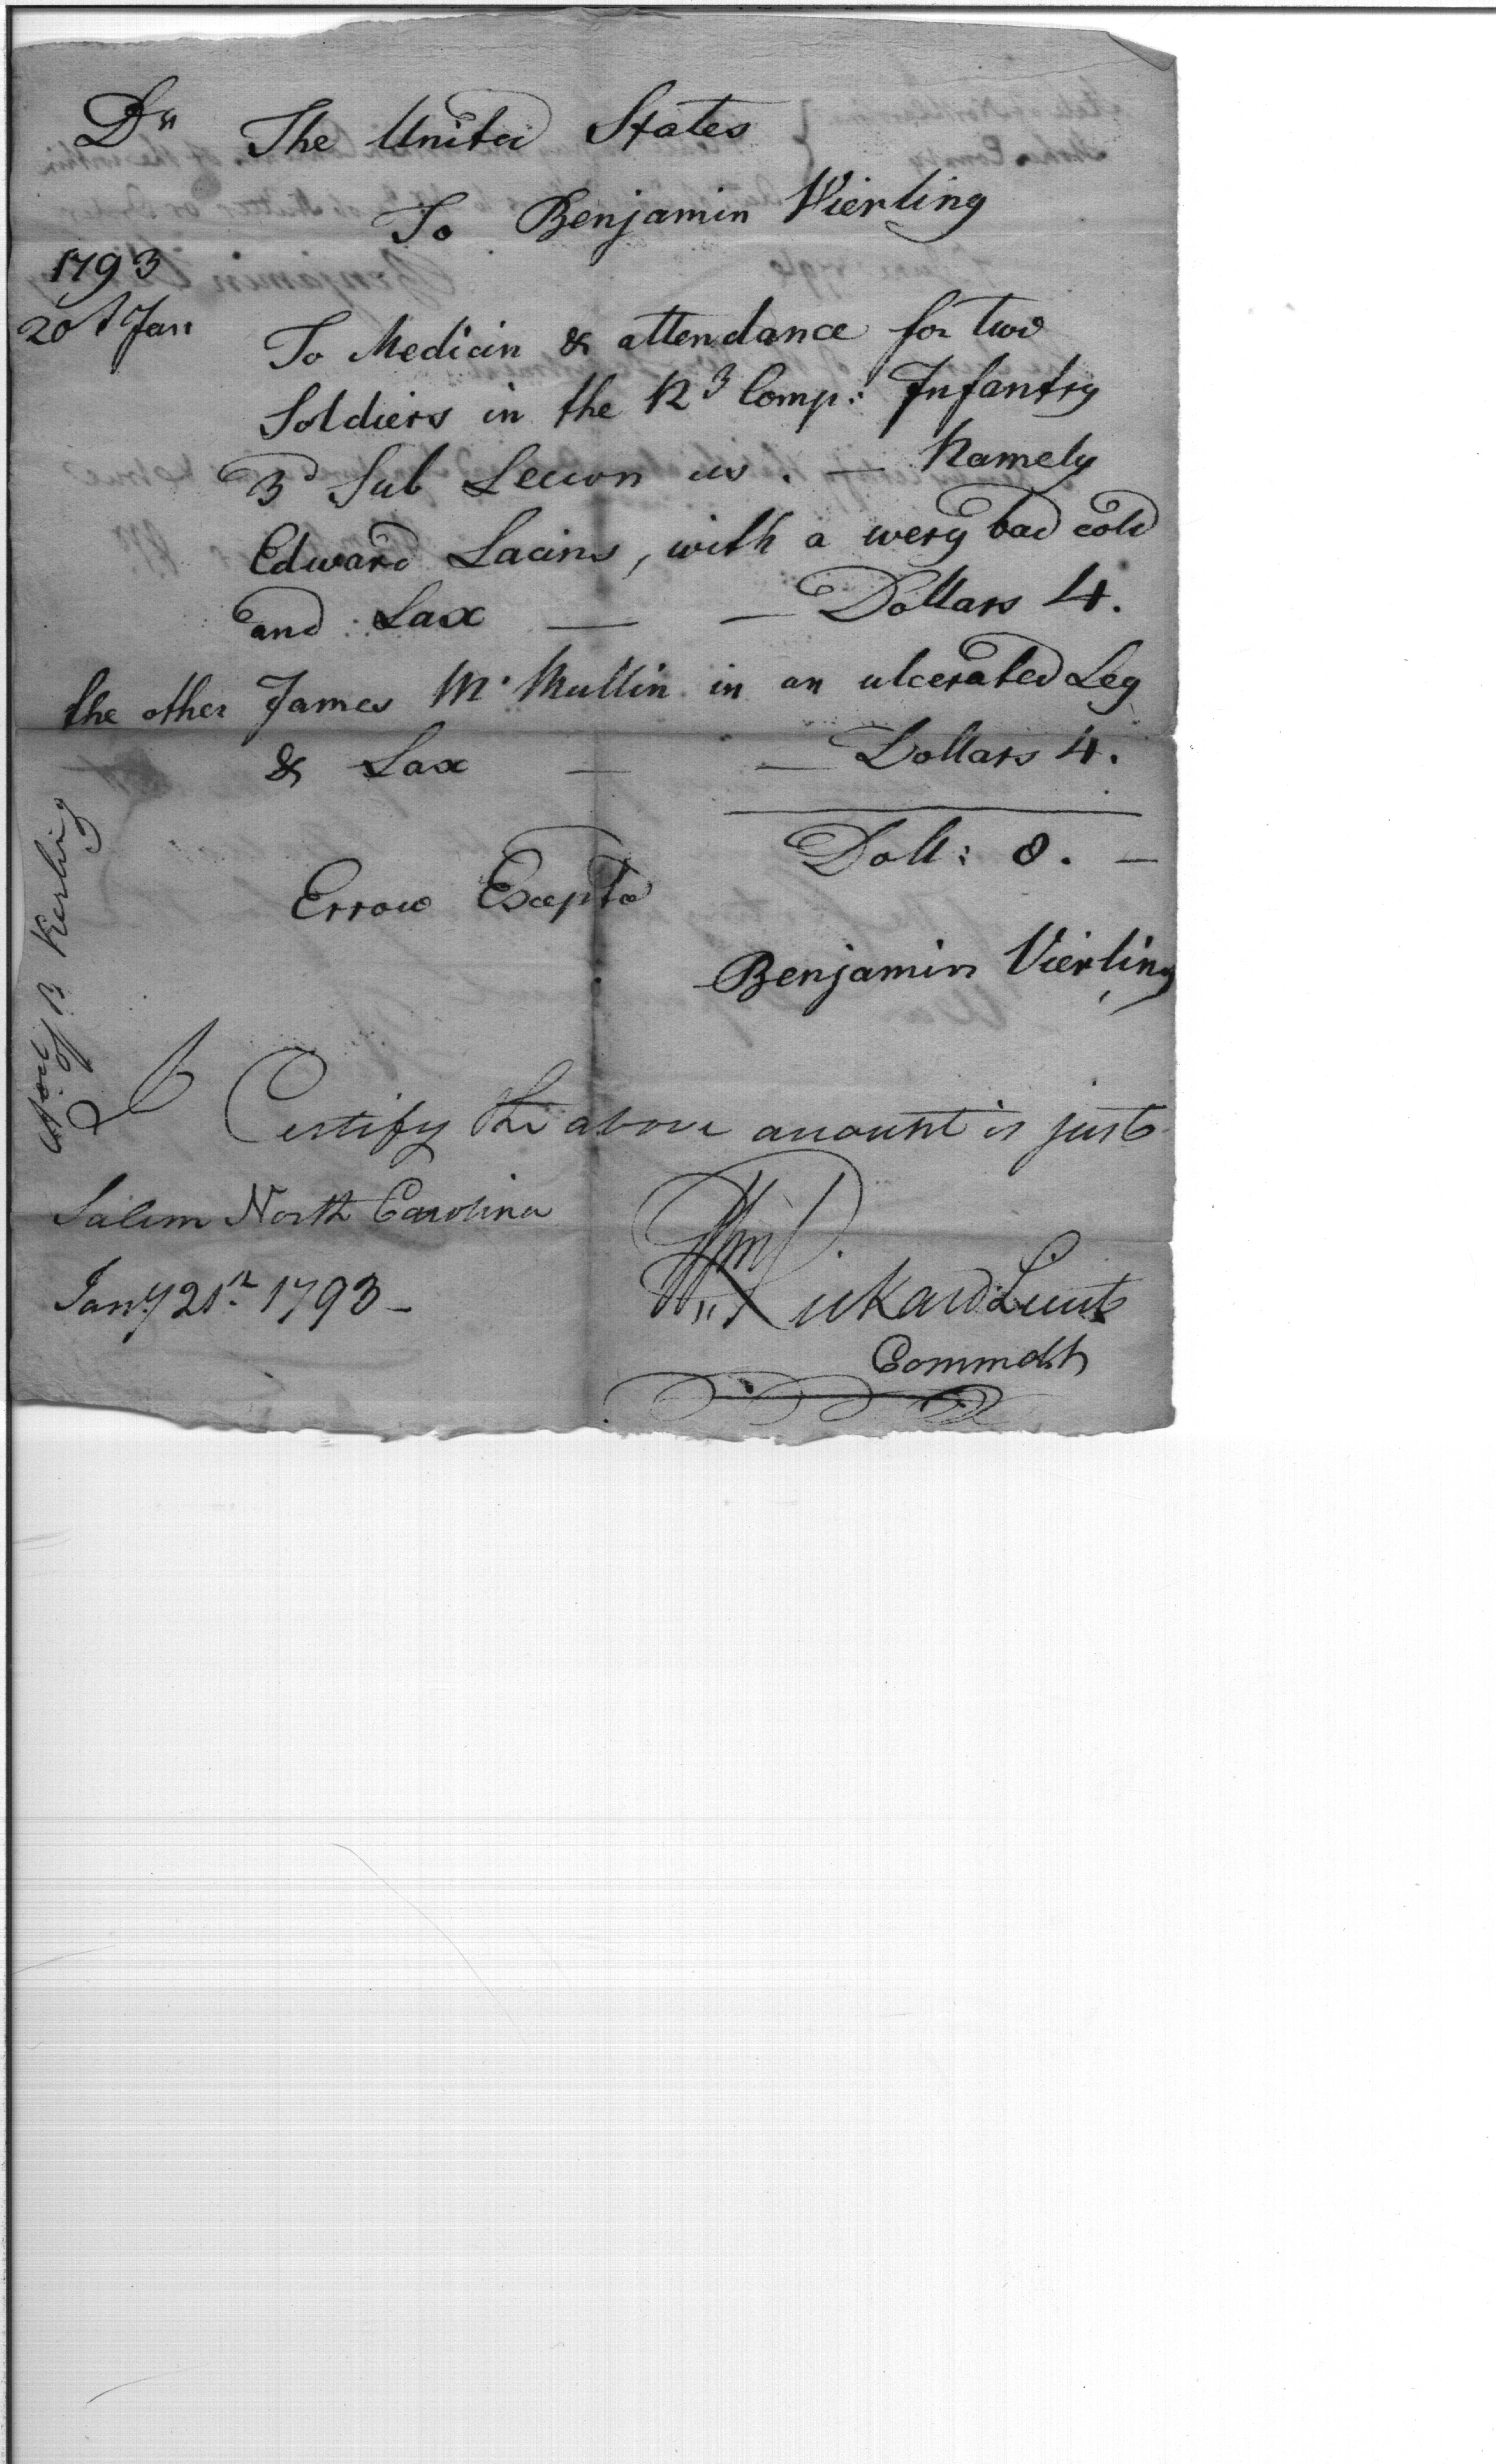 Dr The United States
To Benjamin Vierling
1793
20t Jan To Medicin & attendance for two
Soldiers in the Comp: Infantry
3d Sub us. — Namely
Edward Lacins, with a wery bad cold
and Lax — — Dollars 4.
the other James Mc Mullin in an ulcerated Leg
& Lax — — Dollars 4.
Doll: 8. —
Errow Exepted
Benjamin Vierling
I Certify the above amount is just
Salem North Carolina
Jany 21st 1793 —
Wm Rickard Lieut
Commdt
of B Kerling